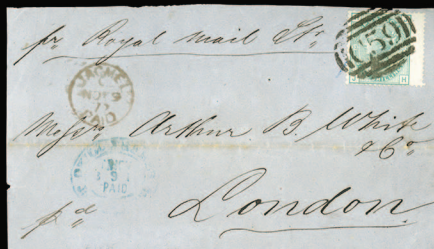 pr Royal Mail Str
C59
H
JACMEL
C
NO 9
PAID
Messrs Arthur B. White
& Co
PAID
pd
London